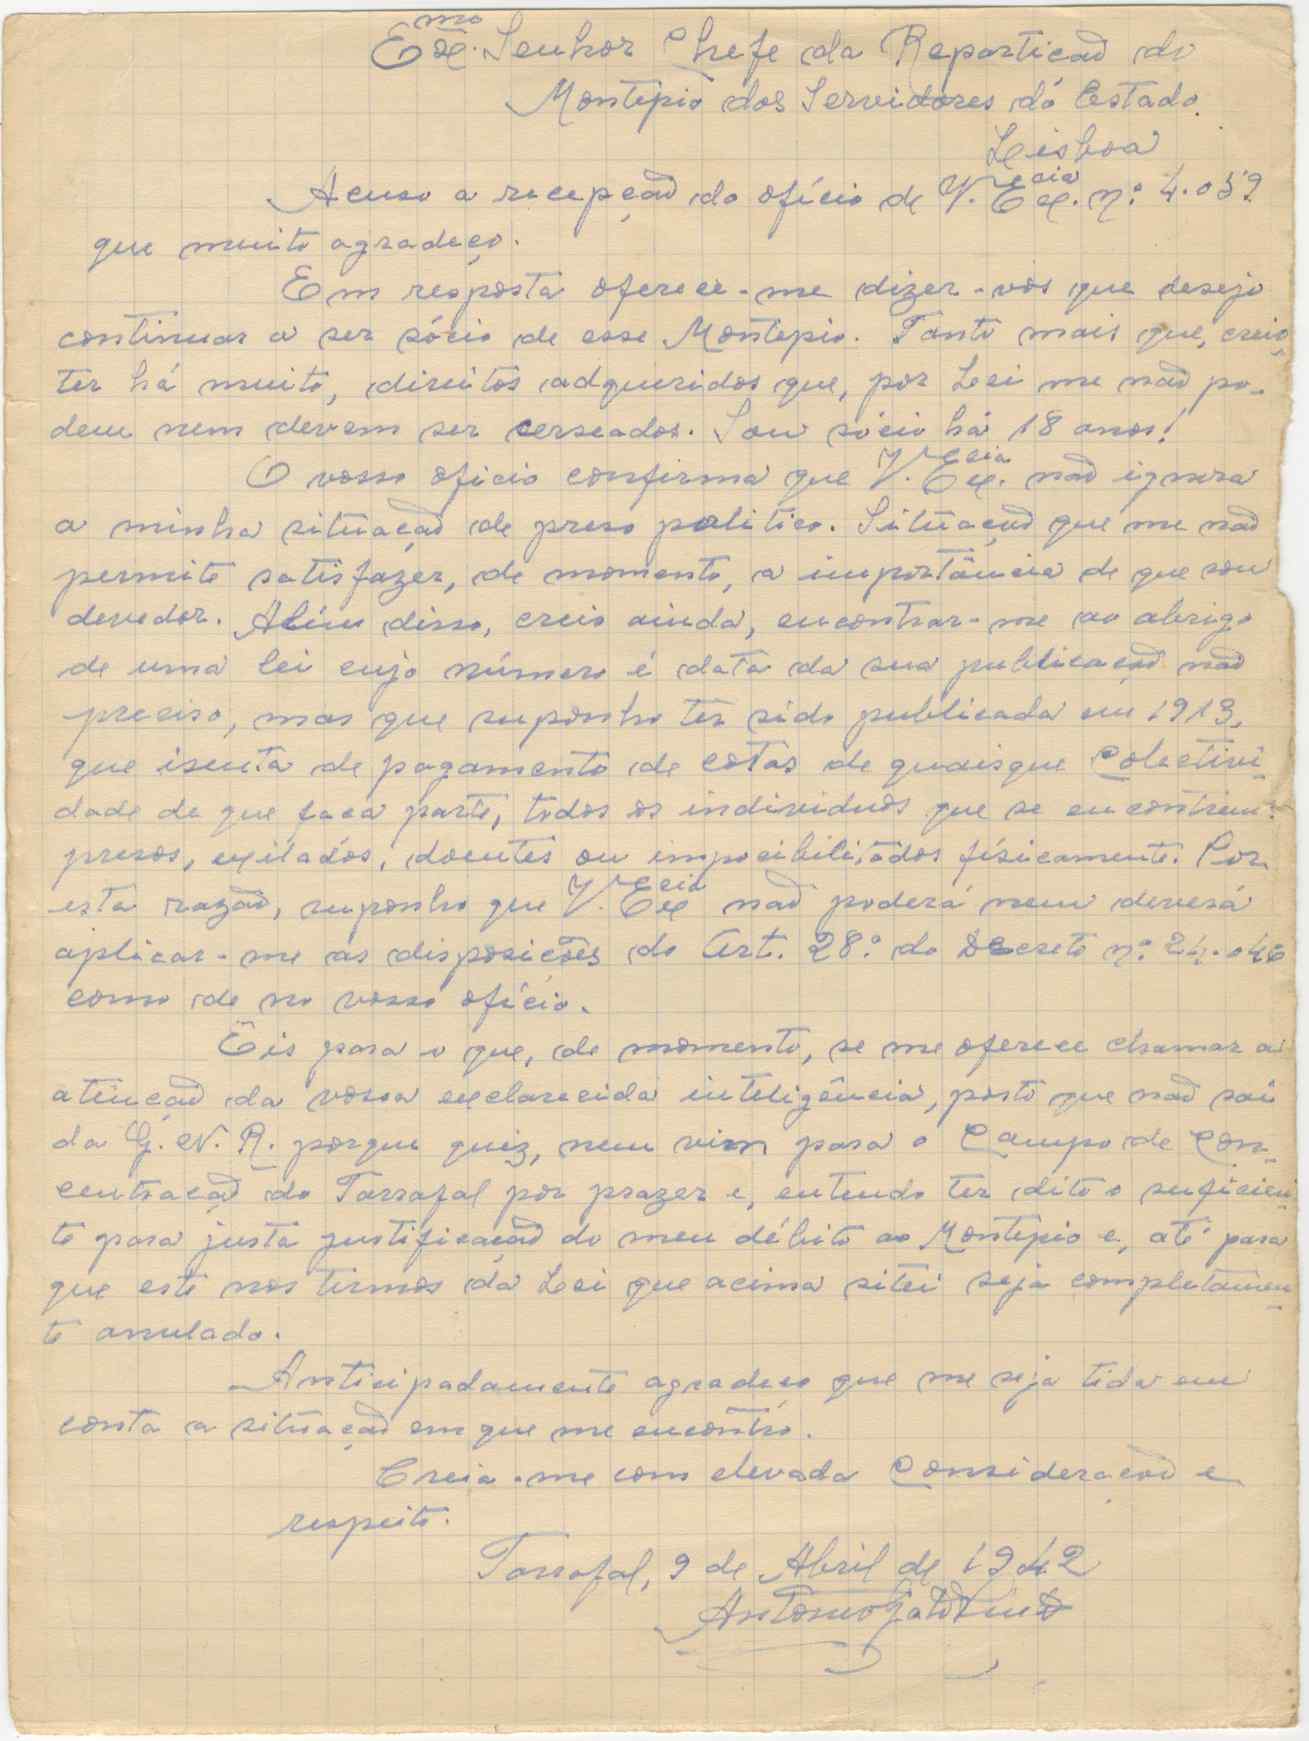 Exmo. Senhor Chefe da Repartição do
Montepio dos Servidores do Estado.
Lisboa
Acuso a recepção do ofício de V. Excia. n.º 4.059
que muito agradeço.
Em resposta oferece-me dizer-vos que desejo
continuar a ser sócio de esse Montepio. Tanto mais que, creio,
ter há muito, direitos adqueridos que, por Lei me não po-
dem nem devem ser cerseados. Sou sócio há 18 anos!
O vosso oficio confirma que V. Excia. não ignora
a minha situação de preso politico. Situação que me não
permite satisfazer, de momento, a importância de que sou
devedor. Além disso, creio ainda, encontrar-me ao abrigo
de uma lei cujo número e data da sua publicação não
preciso, mas que suponho ter sido publicada em 1913,
que isenta de pagamento de cotas de quaisque Colectivi-
dade de que faca parte, todos os individuos que se encontrem:
presos, exilados, doentes ou imposibilitados físicamente. Por
esta razão, suponho que V. Excia não poderá nem deverá
aplicar-me as disposições do Art. 28.º do Decreto n.º 24.046
como de no vosso ofício.
Eis para o que, de momento, se me oferece chamar a
atenção da vossa exclarecida inteligência, posto que não saí
da G. N. R. porque quiz, nem vim para o Campo de Con-
centração do Tarrafal por prazer e, entendo ter dito o suficien-
te para justa justificação do meu débito ao Montepio e, até para
que este nos termos da Lei que acima sitei seja completamen-
te anulado.
Anticipadamente agradeço que me seja tida em
conta a situação em que me encontro.
Creia-me com elevada Consideração e
respeito.
Tarrafal, 9 de Abril de 1942
Antonio Galdino